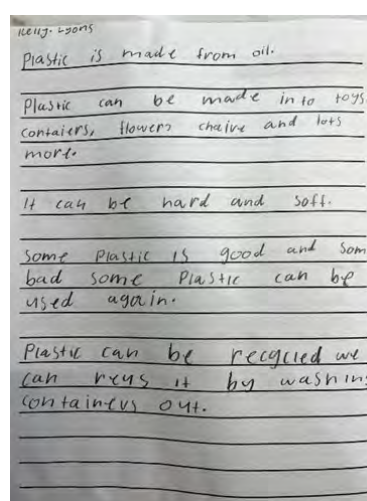 Kelly. Lyons
Plastic is made from oil.
Plastic can be made in to toys.
Contaiers, flowers chaive and lots
more.
It can be hard and soff.
Some Plastic is good and som
bad some Plastic can be
used again.
Plastic can be recycled we
can reus it by washin
containers out.